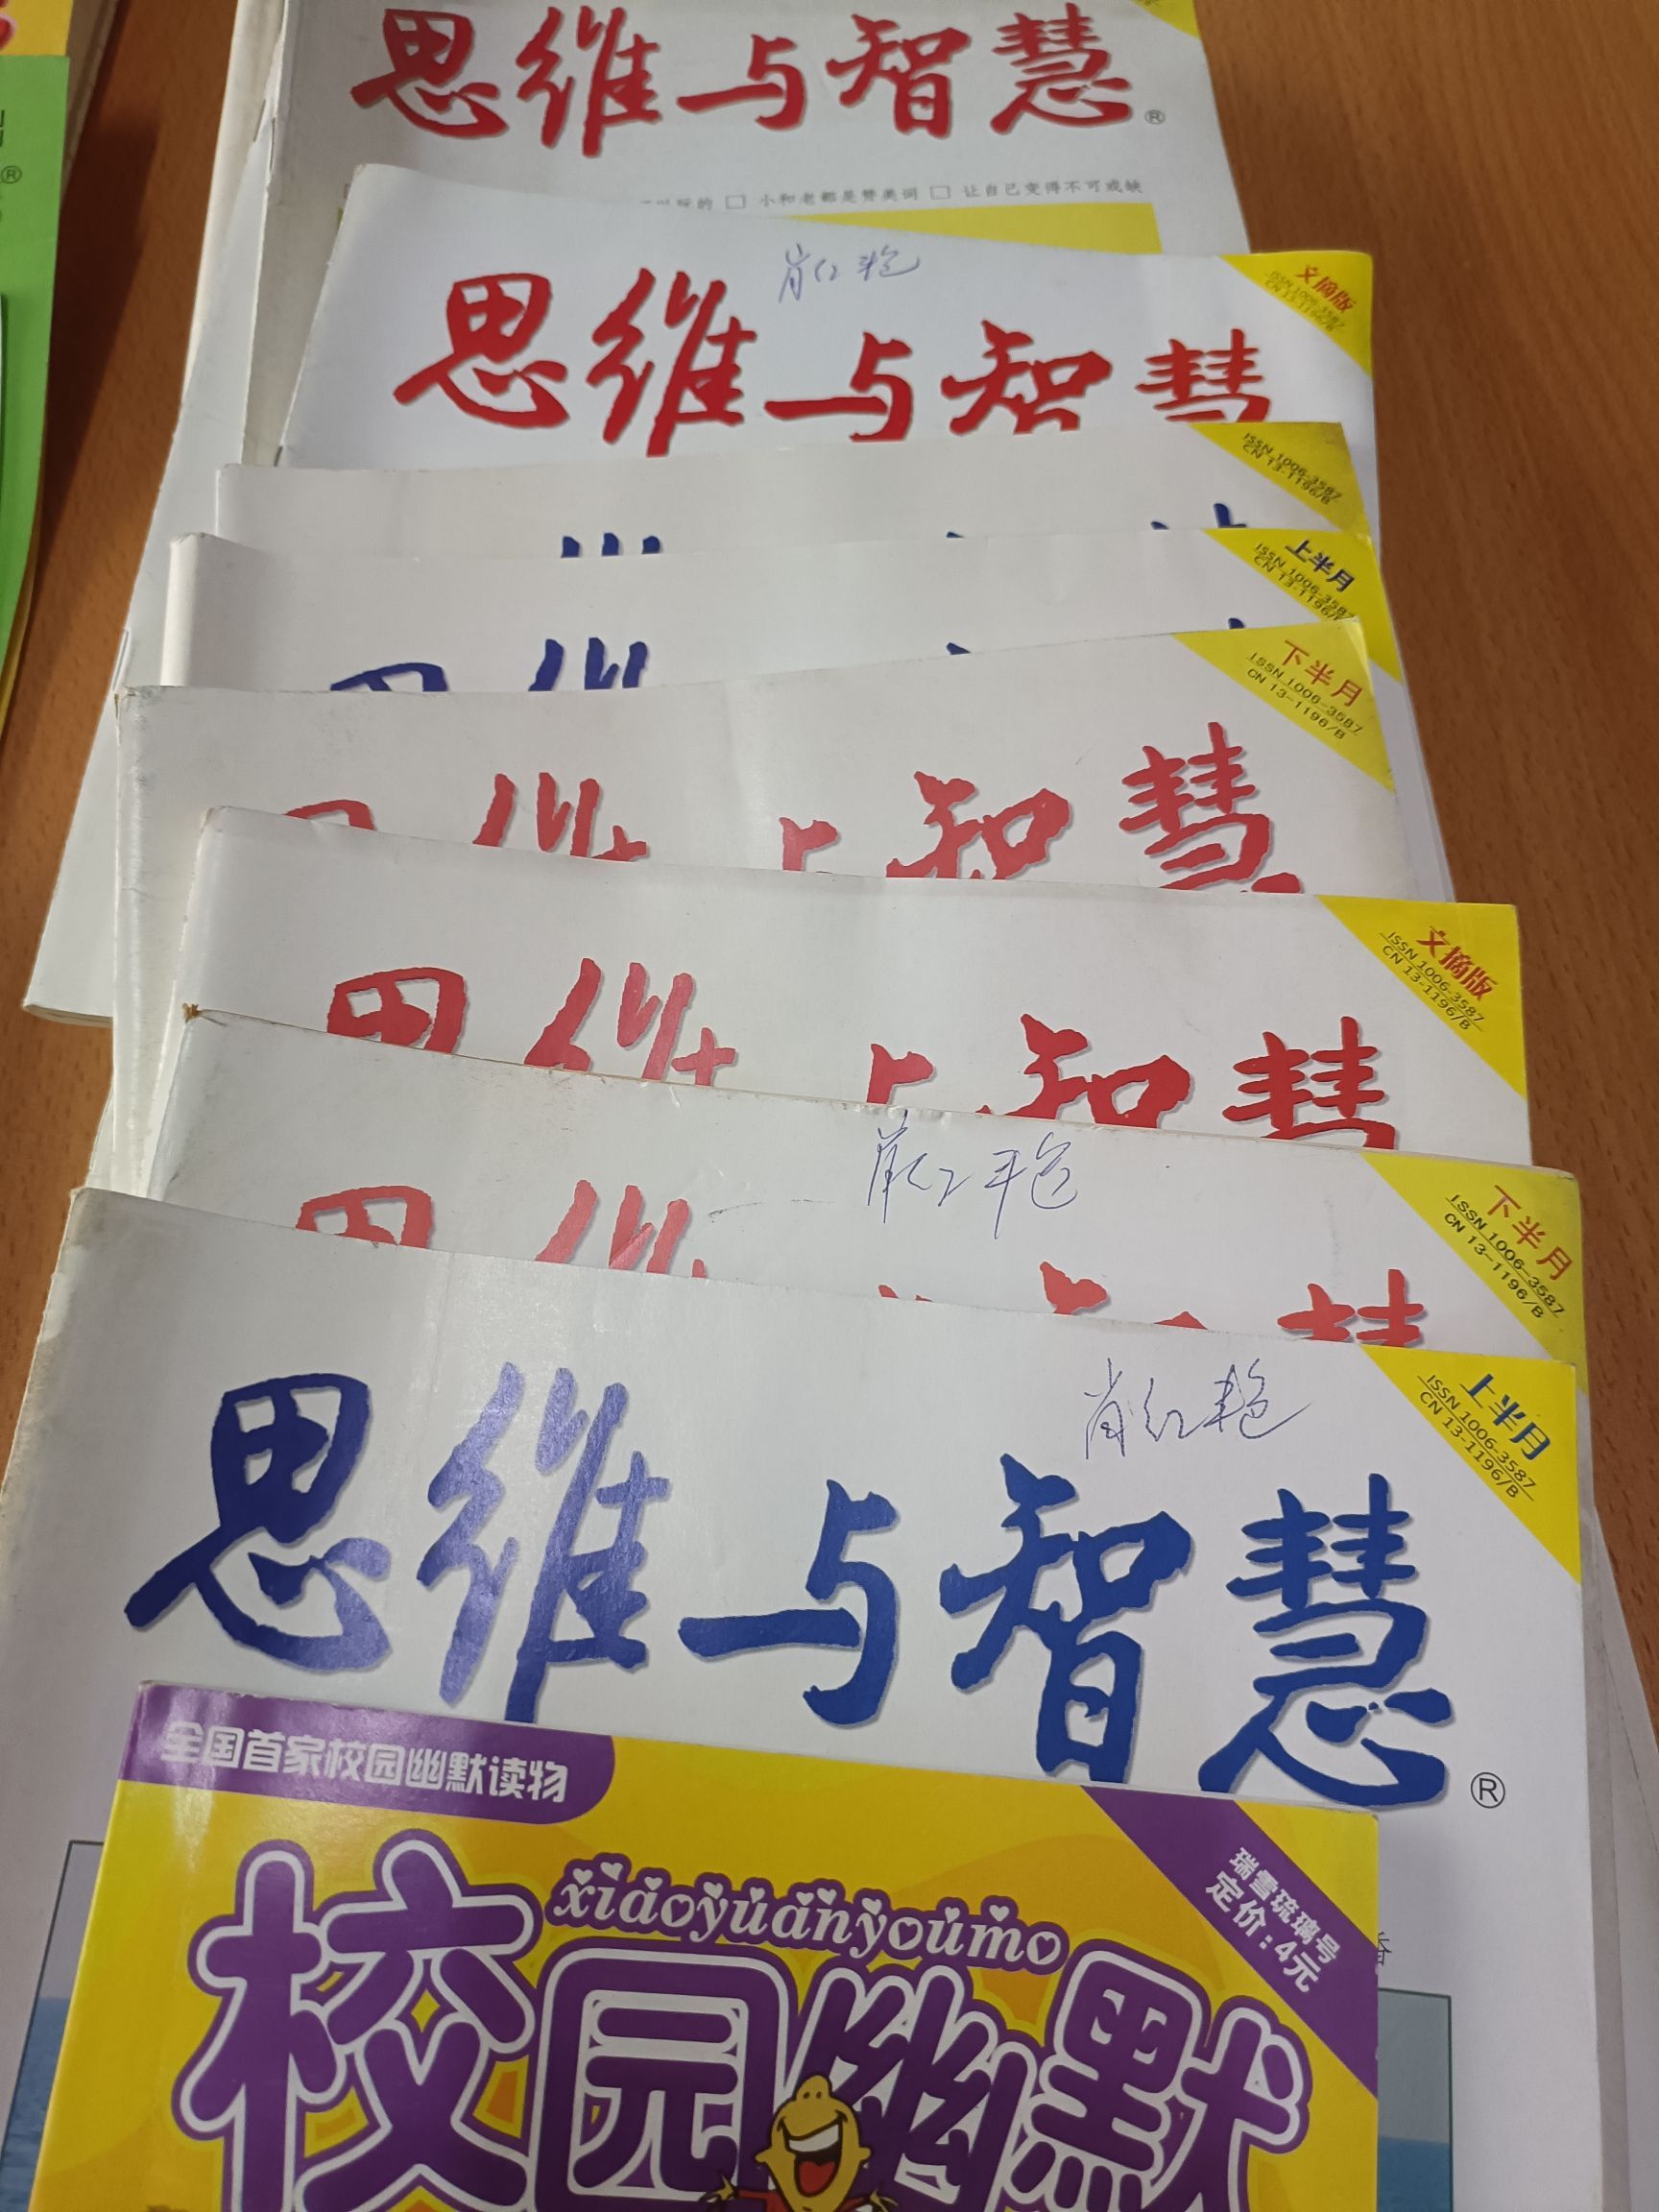 思维与智慧
®
小和老都是赞美词 □ 让自己变得不可或缺
肖红艳
文摘版
ISSN 1006-3587
CN 13-1196/B
思维与智慧
ISSN 1006-3587
CN 13-1196/B
上半月
ISSN 1006-3587
CN 13-1196/B
下半月
ISSN 1006-3587
CN 13-1196/B
思维与智慧
文摘版
ISSN 1006-3587
CN 13-1196/B
思维与智慧
肖红艳
下半月
ISSN 1006-3587
CN 13-1196/B
肖红艳
上半月
ISSN 1006-3587
CN 13-1196/B
思维与智慧
®
全国首家校园幽默读物
瑞雪琉璃号
定价:4元
xiaoyuanyoumo
校园幽默